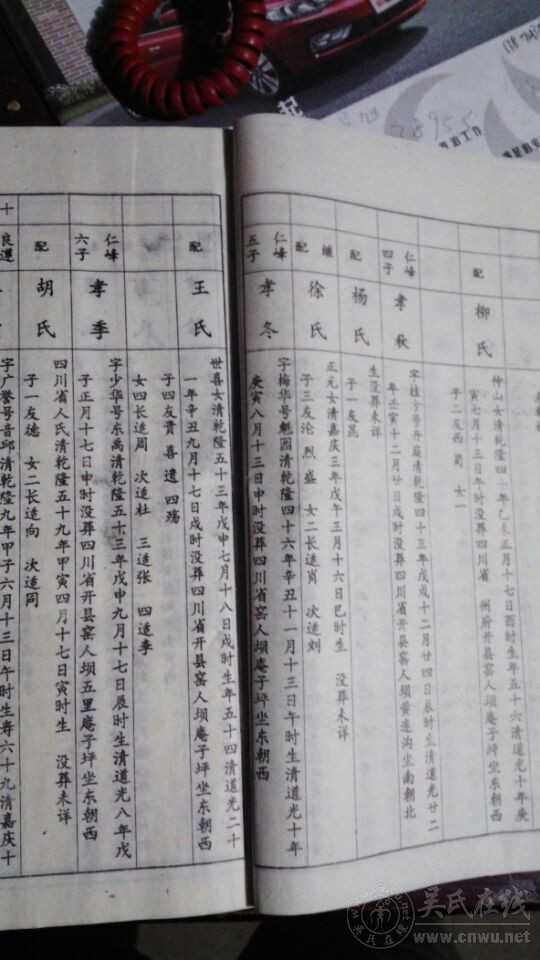 柳氏
配
仲山女清乾隆四十年乙未正月十七日酉时生年五十六清道光十年庚
寅七月十三日午时没葬四川省 州府开县窑人坝庵子坪坐东朝西
子二友西 蜀 女一
仁峰
四子
孝秋
字桂方号丹庭清乾隆四十三年戊戌十二月廿四日辰时生清道光廿二
年壬寅十二月廿日戌时没葬四川省开县窑人坝黄连沟坐南朝北
配
杨氏
生没葬未详
子一友昆
继
配
徐氏
正元女清嘉庆三年戊午三月十六日巳时生 没葬未详
子三友沦 烈 盛 女二长适肖 次适刘
仁峰
五子
孝冬
字梅华号魁园清乾隆四十六年辛丑十一月十三日午时生清道光十年
庚寅八月十三日申时没葬四川省窑人坝庵子坪坐东朝西
配
王氏
世喜女清乾隆五十三年戊申七月十八日戌时生年五十四清道光二十
一年辛丑九月十七日戌时没葬四川省开县窑人坝庵子坪坐东朝西
子四友贵 喜 遗 四殇
女四长适周 次适杜 三适张 四适李
仁峰
六子
孝季
字少华号东禹清乾隆五十三年戊申九月十七日辰时生清道光八年戊
子正月十七日申时没葬四川省开县窑人坝五里庵子坪坐东朝西
配
胡氏
四川省人氏清乾隆五十九年甲寅四月十七日寅时生 没葬未详
子一友德 女二长适向 次适同
十
良遵
字广誉号音邱清乾隆九年甲子六月十三日午时生寿六十九清嘉庆十
起
吴氏在线
www.cnwu.net